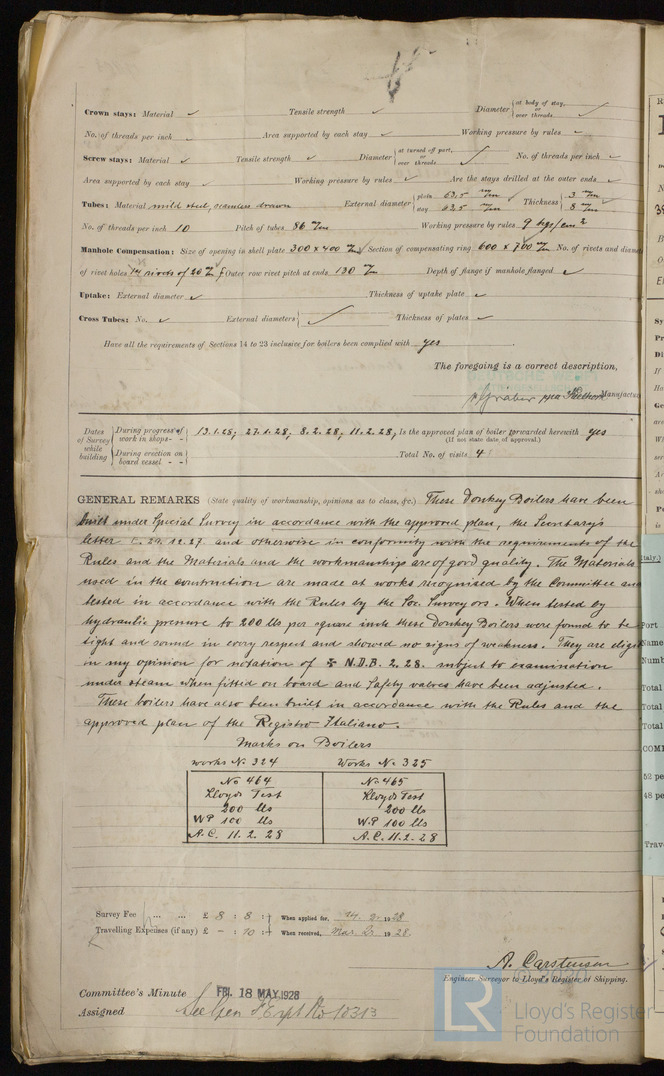 Crown stays: Material ✓ Tensile strength ✓ Diameter { at body of stay, or over threads ✓
No. of threads per inch ✓ Area supported by each stay ✓ Working pressure by rules ✓
Screw stays: Material ✓ Tensile strength ✓ Diameter { at turned off part, or over threads ✓ No. of threads per inch ✓
Area supported by each stay ✓ Working pressure by rules ✓ Are the stays drilled at the outer ends ✓
Tubes: Material mild steel, seamless drawn External diameter { plain 63,5 m/m stay 63,5 m/m Thickness { 3 m/m 8 m/m
No. of threads per inch 10 Pitch of tubes 86 m/m Working pressure by rules 9 kgs/cm²
Manhole Compensation: Size of opening in shell plate 300 x 400 m/m Section of compensating ring 600 x 700 m/m No. of rivets and diam
of rivet holes 14 rivets of 20 m/m Outer row rivet pitch at ends 130 m/m Depth of flange if manhole flanged ✓
Uptake: External diameter ✓ Thickness of uptake plate ✓
Cross Tubes: No. ✓ External diameters { ✓ Thickness of plates ✓
Have all the requirements of Sections 14 to 23 inclusive for boilers been complied with yes
The foregoing is a correct description,
Manufactu
Dates of Survey while building { During progress of work in shops - - 13.1.28, 27.1.28, 8.2.28, 11.2.28, Is the approved plan of boiler forwarded herewith yes
(If not state date of approval.)
During erection on board vessel - - Total No. of visits 4
GENERAL REMARKS (State quality of workmanship, opinions as to class, &c.) These Donkey Boilers have been
built under Special Survey in accordance with the approved plan, the Secretary's
letter E. 29.12.27. and otherwise in conformity with the requirements of the
Rules and the Materials and the workmanship are of good quality. The Materials
used in the construction are made at works recognised by the Committee and
tested in accordance with the Rules by the Soc. Surveyors. When tested by
hydraulic pressure to 200 lbs per square inch these Donkey Boilers were found to be
tight and sound in every respect and showed no signs of weakness. They are eligi
in my opinion for notation of ✠ N.D.B. 2.28. subject to examination
under steam when fitted on board and Safety valves have been adjusted.
These boilers have also been built in accordance with the Rules and the
approved plan of the Registro Italiano.
Marks on Boilers
Works No. 324 Works No. 325
No 464 No. 465
Lloyds Test Lloyds Test
200 lbs 200 lbs
W.P 100 lbs W.P 100 lbs
A.C. 11.2.28 A.C. 11.2.28
Survey Fee ... ... £ 8 : 8 : When applied for, 14. 2. 1928
Travelling Expenses (if any) £ - : 10 : When received, Mar 2 1928
A. Carstensen
Engineer Surveyor to Lloyd's Register of Shipping.
© 2020
Committee's Minute FRI. 18 MAY. 1928
Assigned See Gen Rpt No 10313
LR Lloyd's Register
Foundation